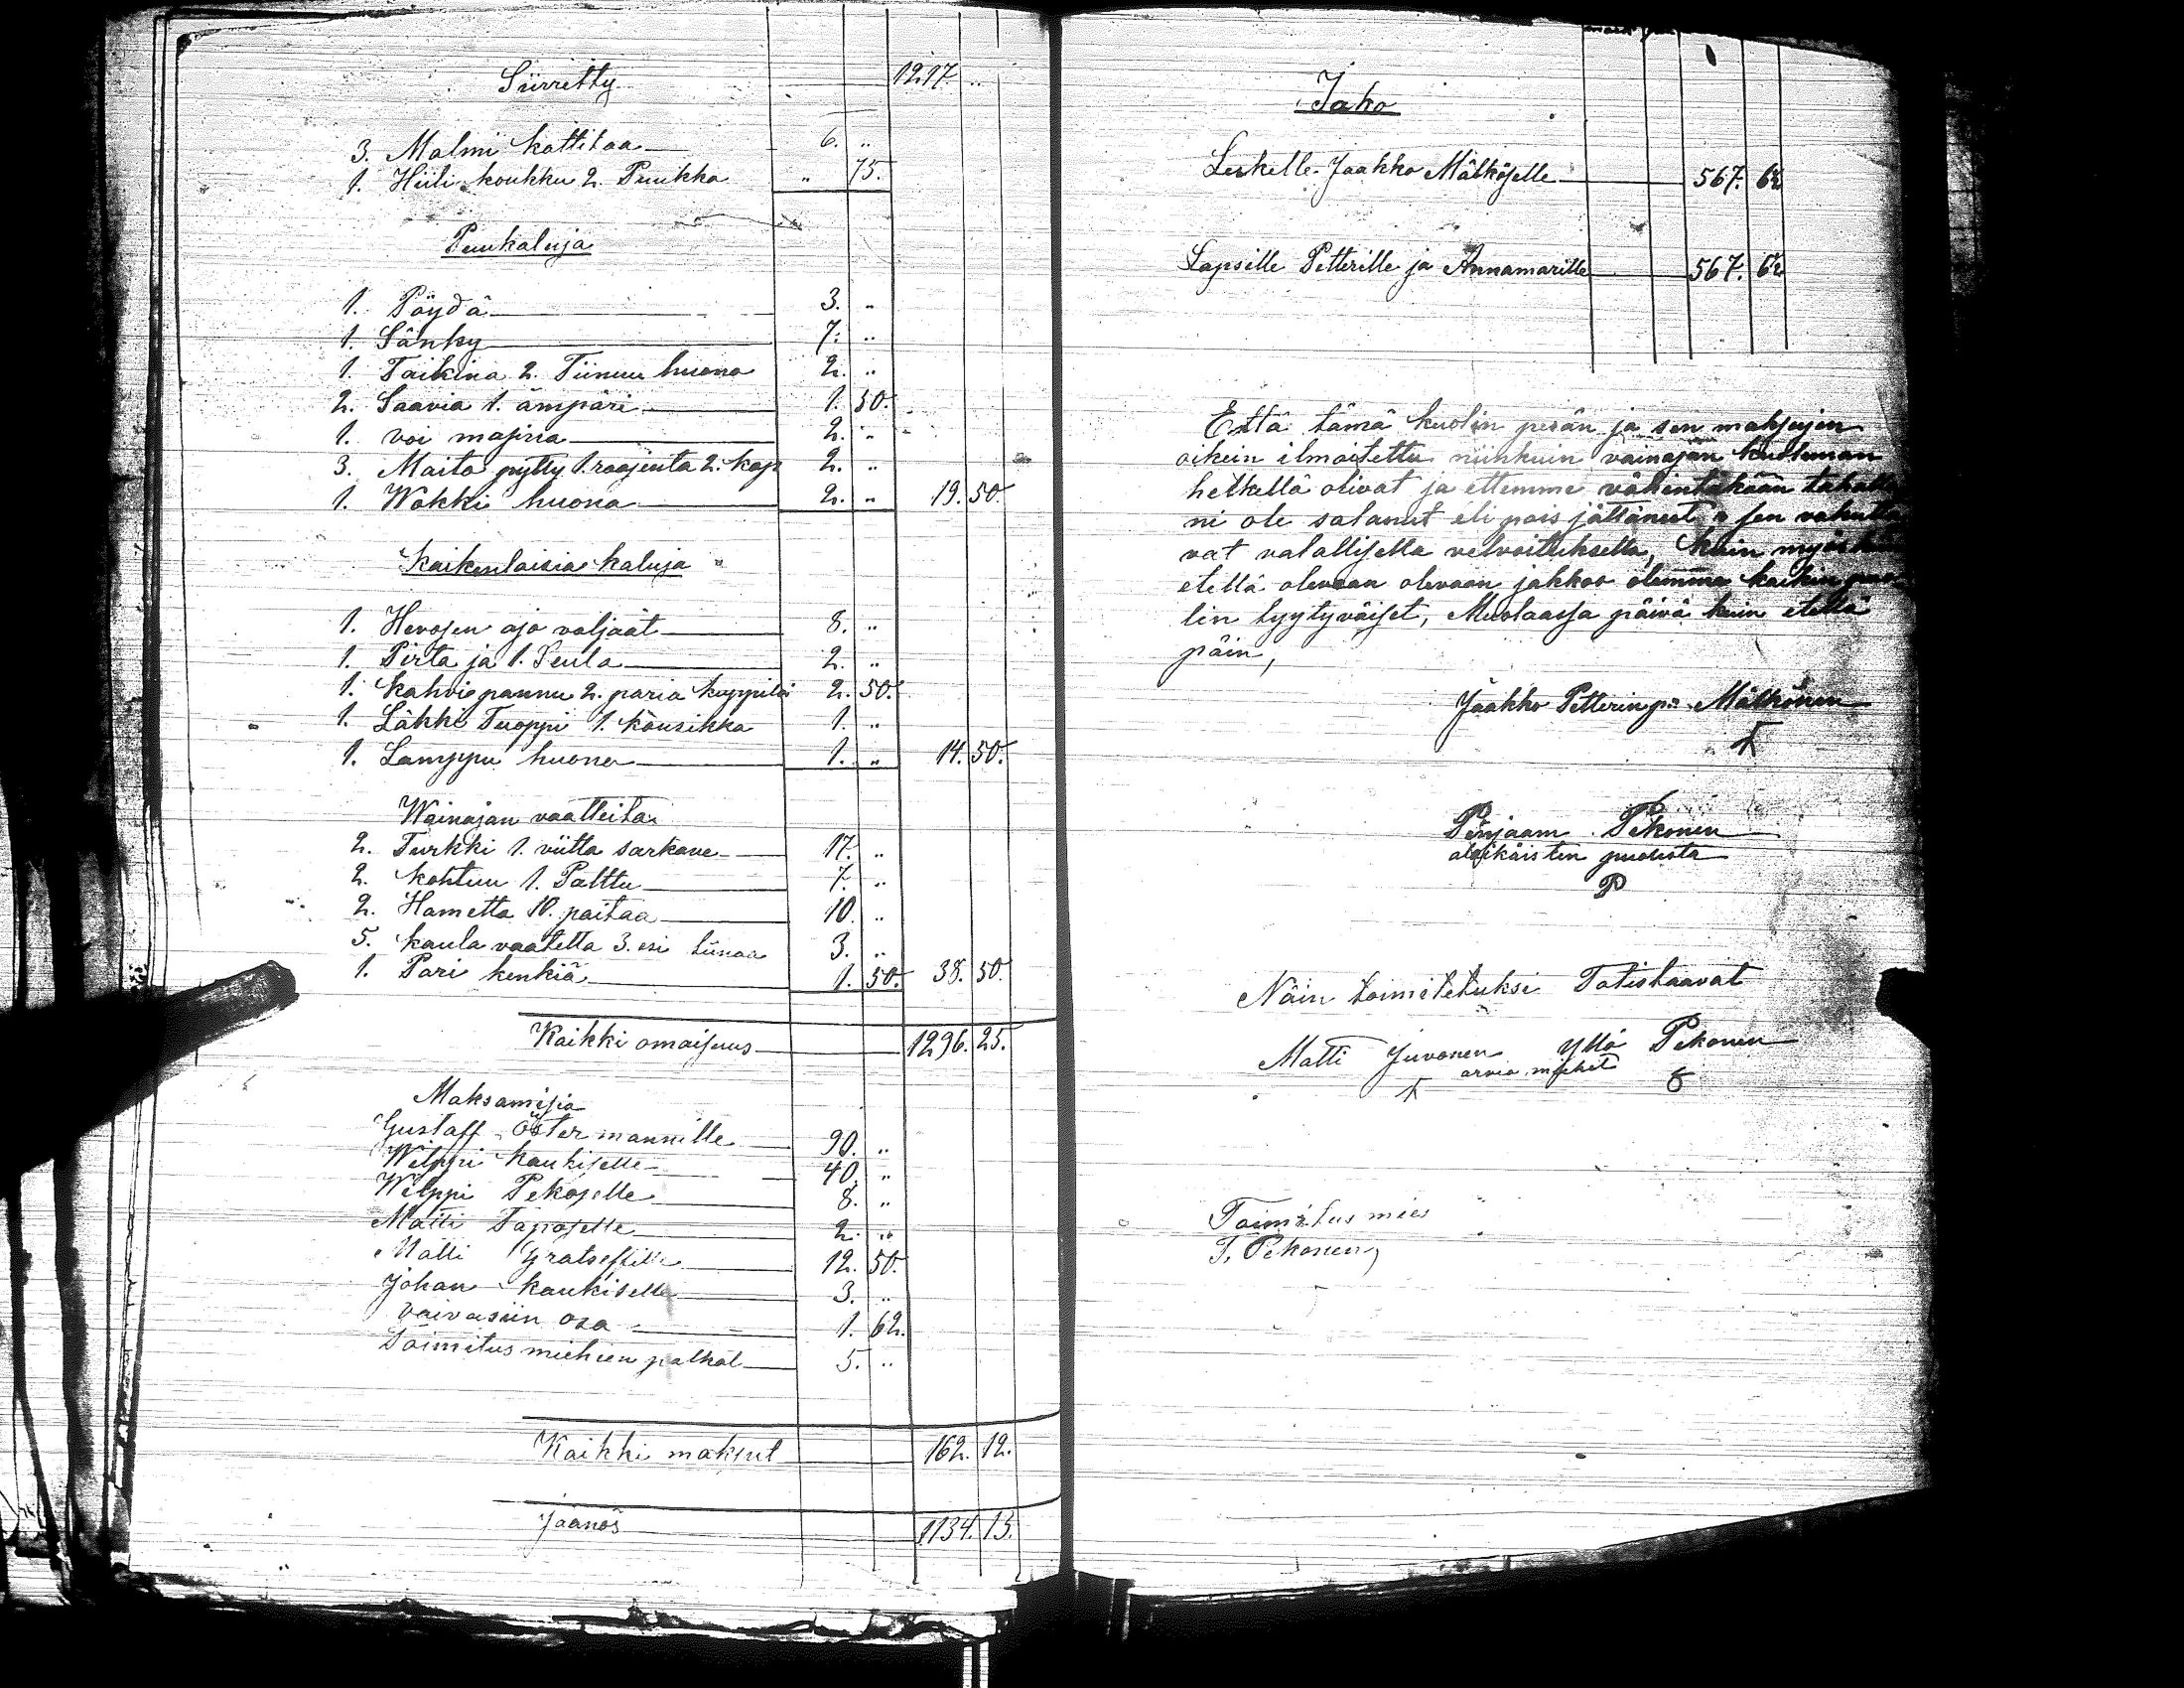 Siirretty 1217 ..
3. Malmi kattilaa 6. ..
1. Hiili koukku 2. Puukka .. 75.
Puukaluja
1. Pöydä 3. ..
1. Sänky 7. ..
1. Taikina 2. Tiinuu huono 2. ..
2. Saavia 1. ämpäri 1. 50.
1. voi masina 2. ..
3. Maito pytty 1. raajenta 2. kap 2. ..
1. Wokki huono 2. .. 19. 50.
Kaikenlaisia kaluja
1. Hevosen ajo valjaat 8. ..
1. Pirta ja 1. Seula 2. ..
1. Kahvi pannu 2. paria kuppiloi 2. 50.
1. Läkki Tuoppi 1. kousikka 1. ..
1. Lamppu huono 1. .. 14. 50.
Wainajan vaatteita
2. Turkki 1. viitta sarkane 17. ..
2. kohtuu 1. Palttu 7. ..
2. Hametta 10. paitaa 10. ..
5. kaula vaatetta 3. esi liinaa 3. ..
1. Pari kenkiä 1. 50. 38. 50.
Kaikki omaisuus 1296. 25.
Maksamisia
Gustaff Östermannille 90. ..
Wilppi Kaukiselle 40. ..
Wilppi Pekoselle 8. ..
Matti Taposelle 2. ..
Matti 12. 50.
Johan Kaukiselle 3. ..
vaivasiin osa 1. 62.
Toimitus miehien palkat 5. ..
Kaikki maksut 162. 12.
Jäänös 1134. 13.
Jako
Leskelle Jaakko Mälköselle 567. 6½
Lapsille Petterille ja Annamarille 567. 6½
Että tämä kuolin perän ja sen maksujen
oikein ilmoitettu niinkuin vainajan kuoleman
hetkellä olivat ja ettemme vähintäkään
ni ole salanut eli pois jättäneet, sen
vat valallisella velvoituksella, kuin myös
etellä olevaan olevaan jakkoo olemma kaikin
lin tyytyväiset, Muolaassa päivä kuin etellä
päin,
Jaakko Petterinp: Mälkönen
Pekonen
alaikäisten puolesta
P
Näin toimitetuksi Totistaavat
Matti Juvonen Yllö Pekonen
arvio miehet
Toimitus mies
T. Pekonen